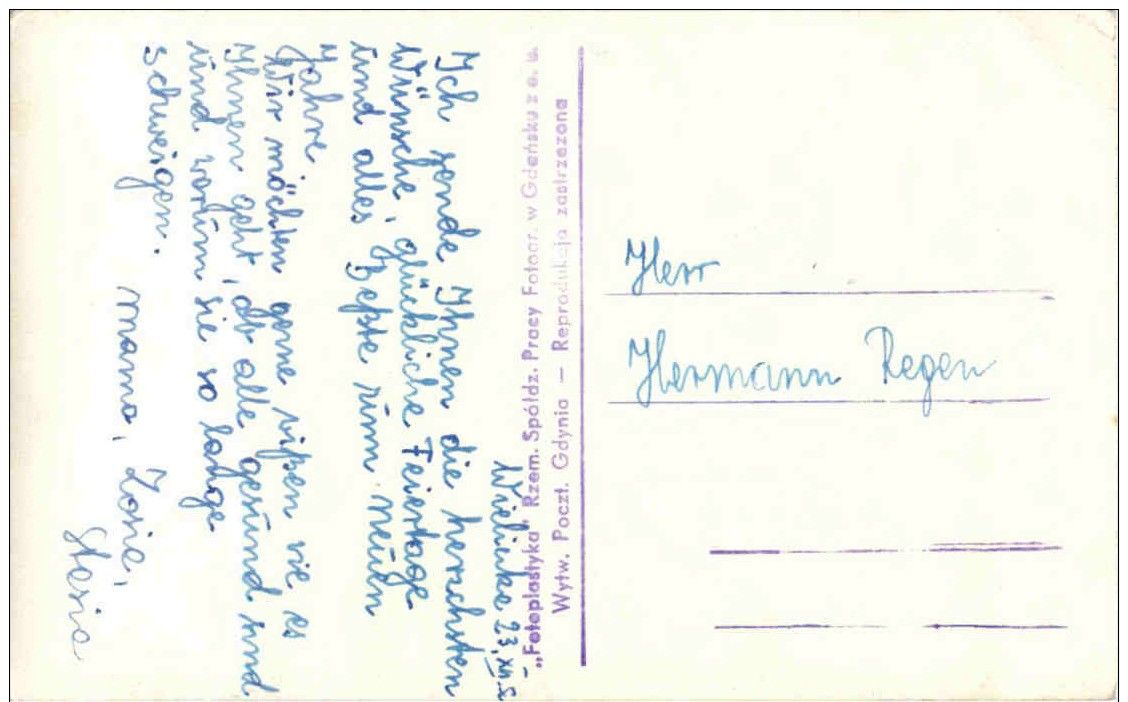 Wieliczka 23, XII.
Ich sende Ihnen die herschsten
Wünsche, glückliche Feiertage
und alles Beßte zum neuen
Jahre.
Wir möchten gerne wißen wie es
Ihnen geht, ob alle gesund sind
und warum sie so lange
schweigen.
Mama, Zosia,
Stasia
"Fotoplastyka" Rzem. Spółdz. Pracy Fotogr. w Gdańsku z o. u.
Wytw. Poczt. Gdynia — Reprodukcja zastrzeżona
Herr
Hermann Regen